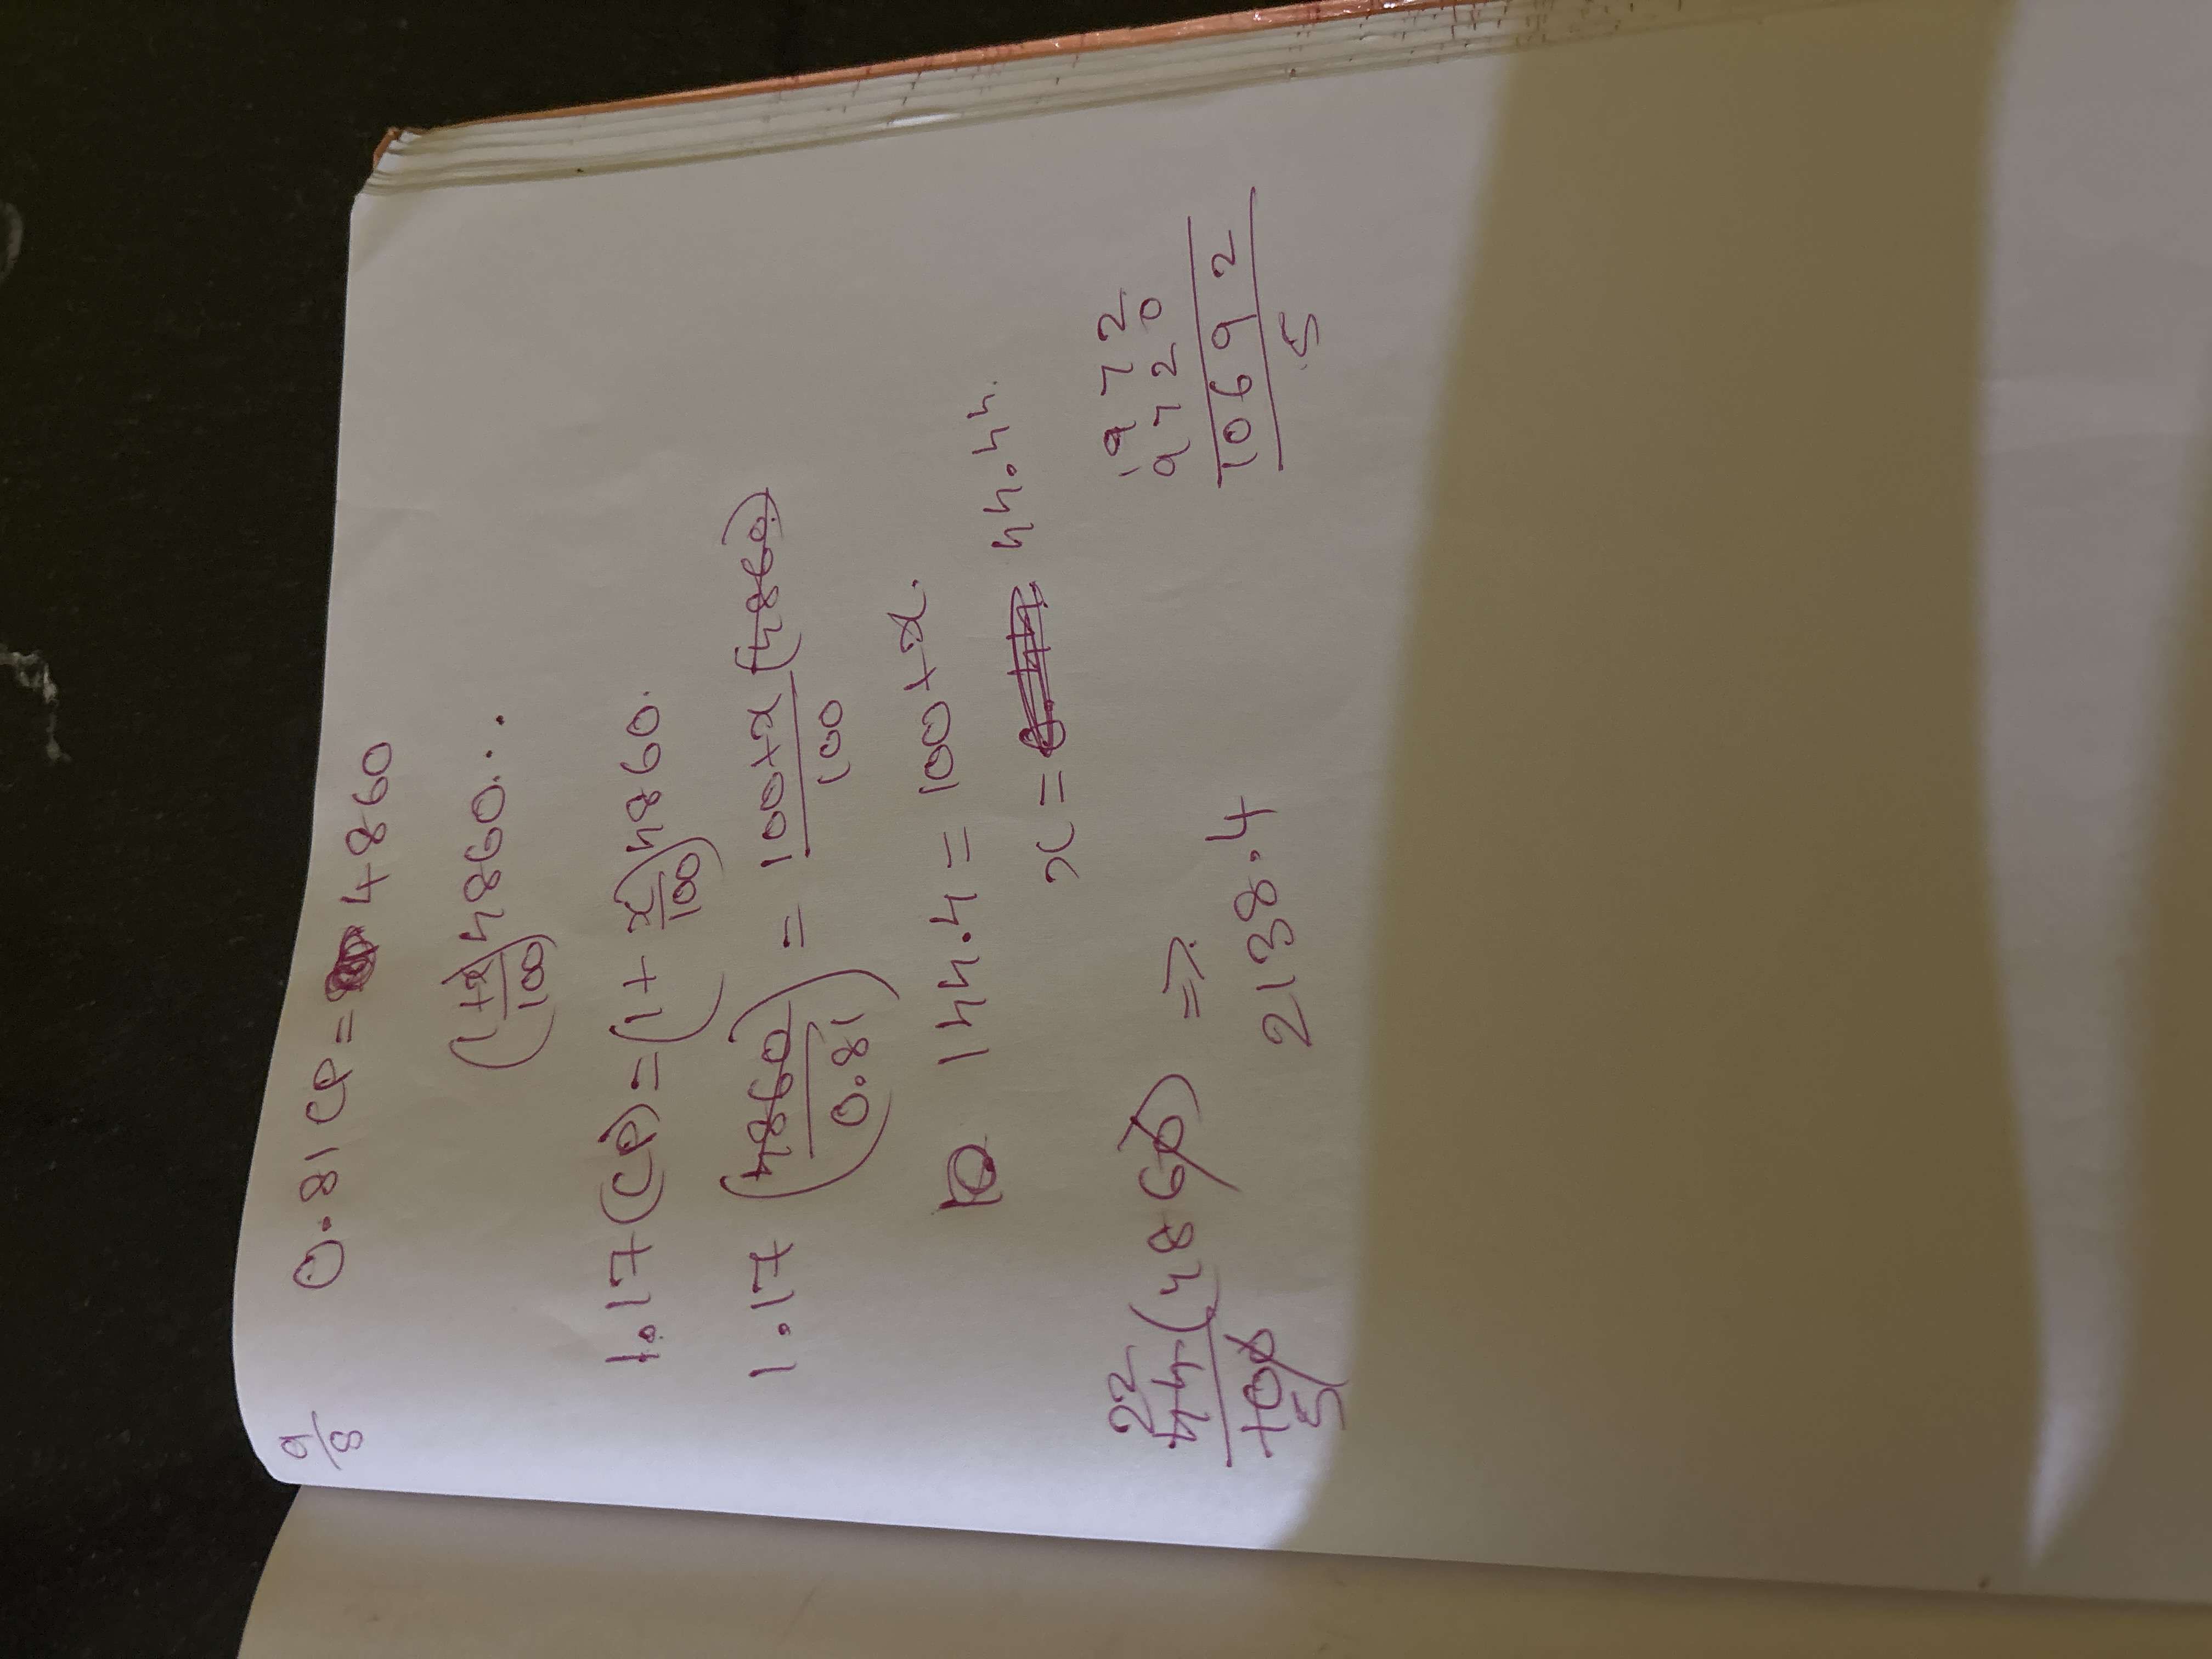 9/8
0.81 CP = 4860
(1+x/100) 4860...
1.17 (CP) = (1 + x/100) 4860.
1.17 (4860/0.81) = 100+x/100 (4860)
144.4 = 100 + x.
x = 44.44.
22
44/100 (4860) =>
5
2138.4
1972
9720
10692
5